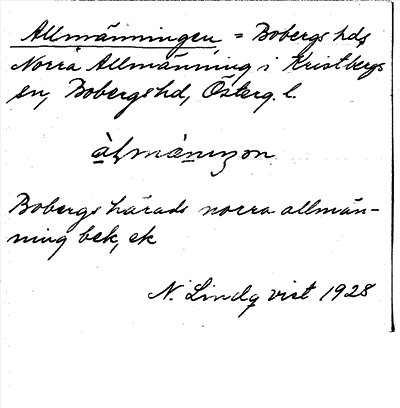 Allmänningen = Bobergs hds
Norra Allmänning i Kristbergs
sn, Bobergs hd, Österg. l.
Bobergs härads norra allmän-
ning bek, ek
N. Lindqvist 1928